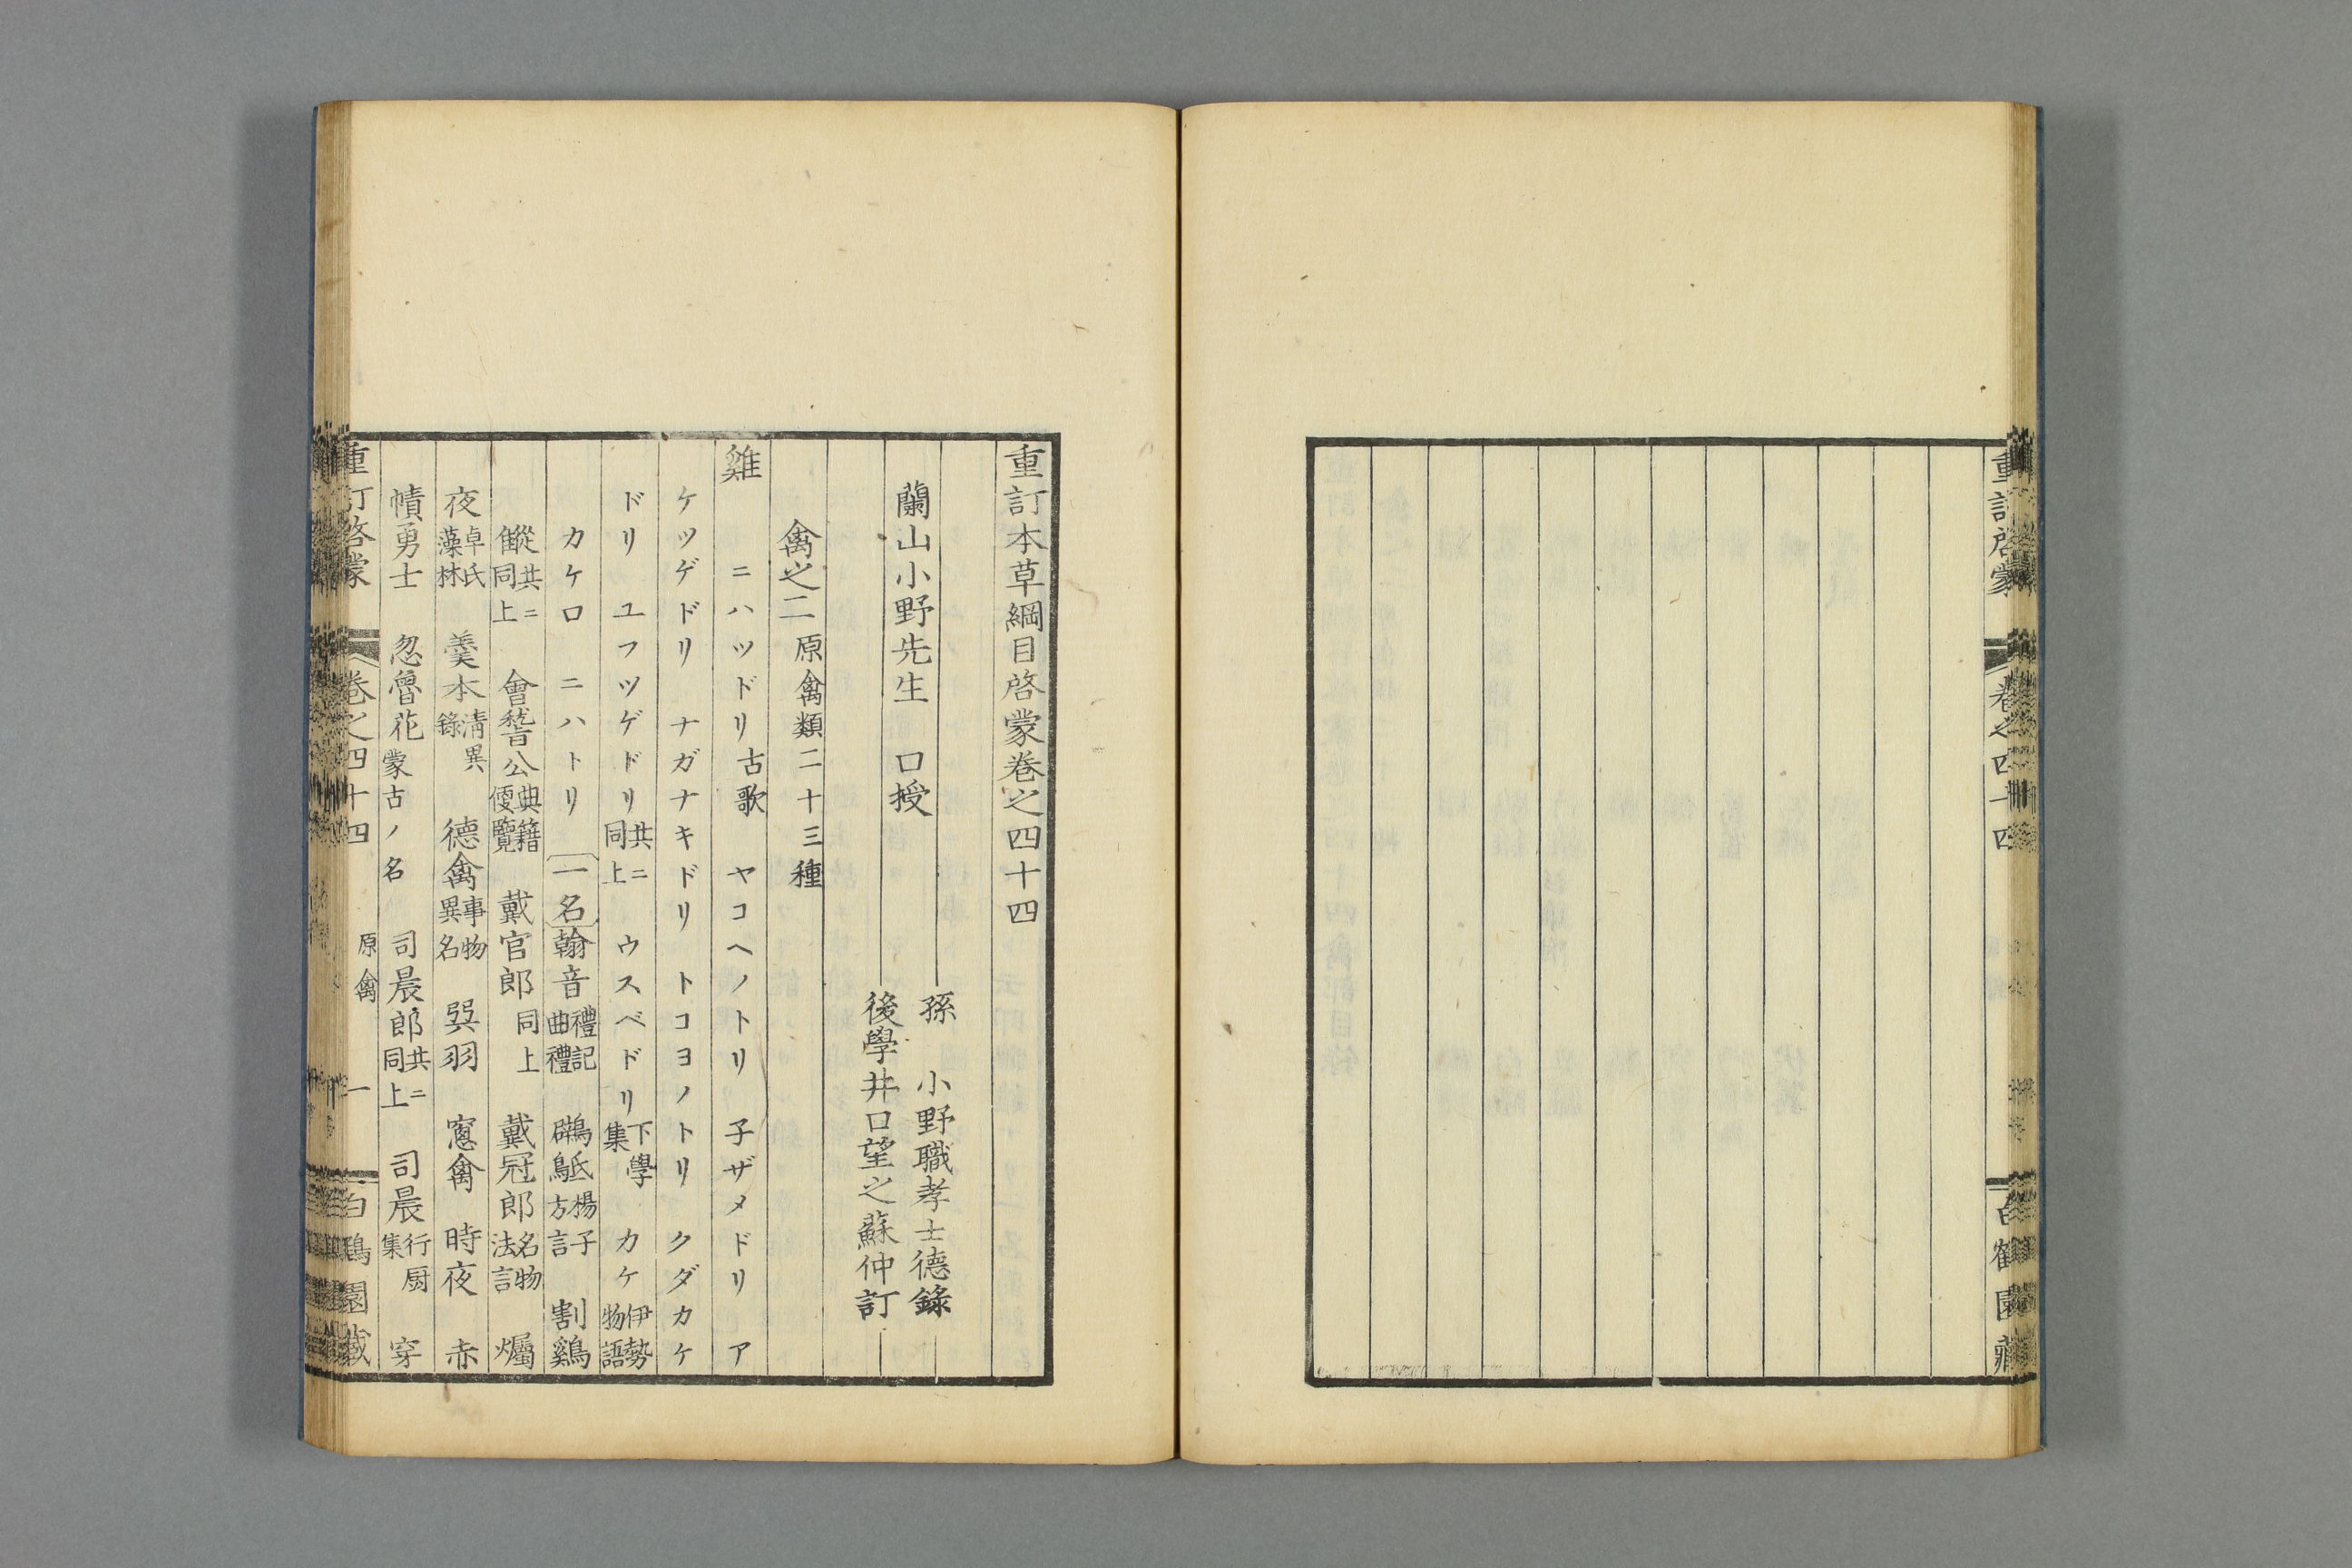 重訂啓蒙 卷之四十四 白鶴園藏
重訂本草綱目啓蒙卷之四十四
蘭山小野先生 口授
孫 小野職孝士德錄
後學井口望之蘇仲訂
禽之二 原禽類二十三種
雞 ニハツドリ古歌 ヤコヘノトリ 子ザメドリ ア
ケツゲドリ ナガナキドリ トコヨノトリ クダカケ
ドリ ユフツゲドリ共ニ同上 ウスベドリ下學集 カケ伊勢物語
カケロ ニハトリ 一名翰音禮記曲禮 鸊䳄楊子方言 割雞
雔共ニ同上 會稽公典籍便覽 戴官郎同上 戴冠郎名物法言 爥
夜卓氏藻林 羹本淸異錄 德禽事物異名 巽羽 窻禽 時夜 赤
幘勇士 忽魯花蒙古ノ名 司晨郎共ニ同上 司晨行厨集 穿
重訂啓蒙 卷之四十四 原禽 一 白鶴園藏